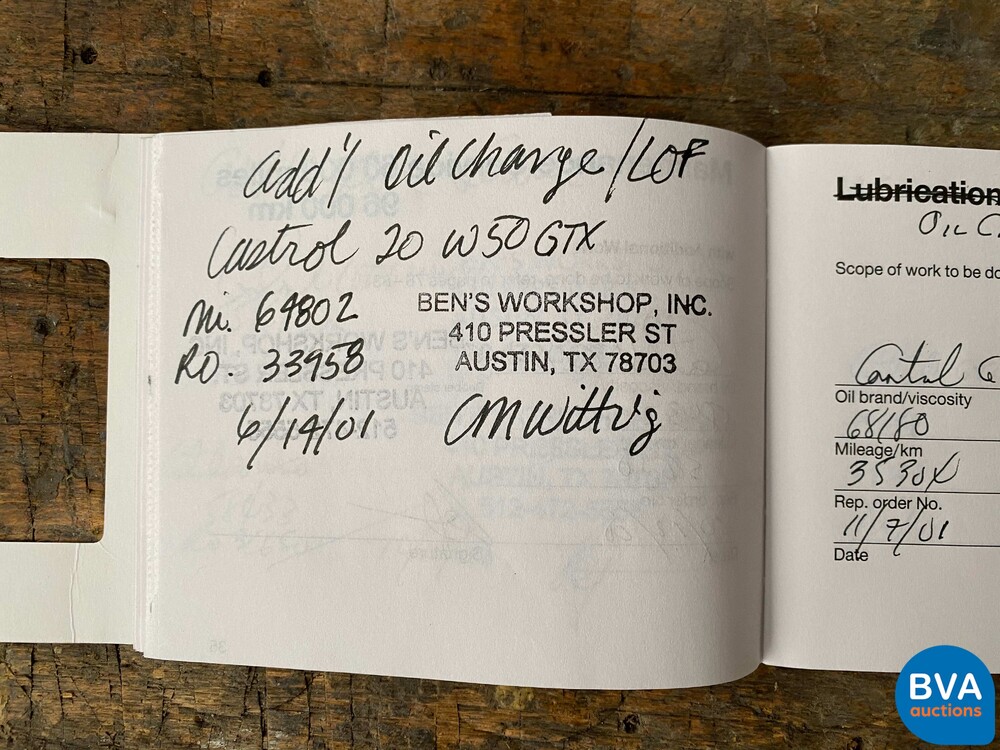 Add'l Oil Change/LOF
Castrol 20W50 GTX
mi. 64802
RO. 33958
6/14/01
BEN'S WORKSHOP, INC.
410 PRESSLER ST
AUSTIN, TX 78703
CM Wittvig
Lubrication
OIL C
Scope of work to be do
Castrol G
Oil brand/viscosity
68180
Mileage/km
Rep. order No.
11/7/01
Date
BVA
auctions